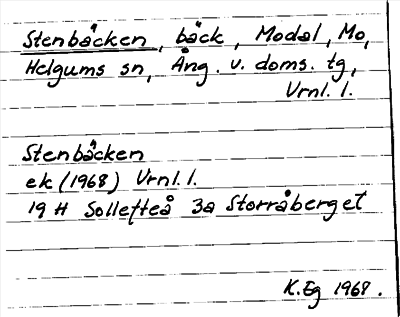 Stenbäcken, bäck, Modal, Mo,
Helgums sn, Ång. v. doms. tg,
Vrnl. l.
Stenbäcken
ek (1968) Vrnl. l.
19 H Sollefteå 3a Storråberget
K. Eg 1968.